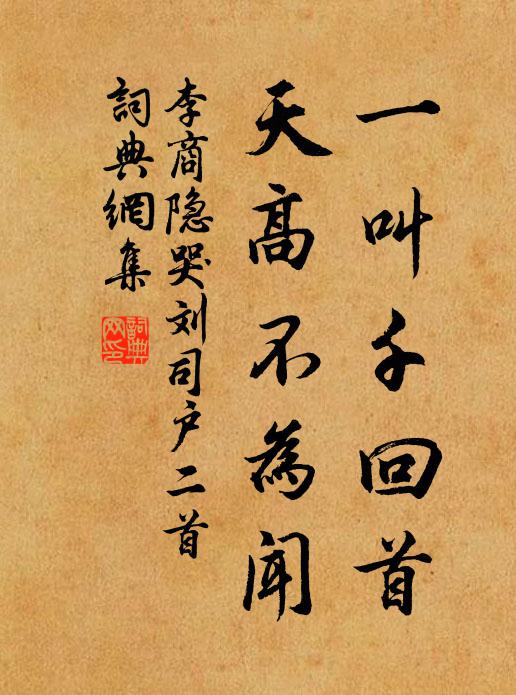 一叫千回首
天高不為聞
李商隐哭刘司户二首
詞典網集
詞典网印